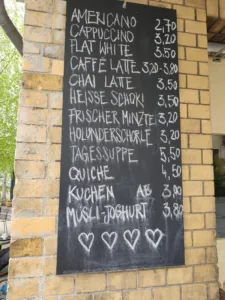 AMERICANO 2,70
CAPPUCCINO 3,20
FLAT WHITE 3.50
CAFFÈ LATTE 3,20-3,80
CHAI LATTE 3.50
HEISSE SCHOKI 3,50
FRISCHER MINZTE 3,20
HOLUNDERSCHORLE 3,20
TAGESSUPPE 5,50
QUICHE 4,50
KUCHEN AB 3,00
MÜSLI-JOGHURT 3,80